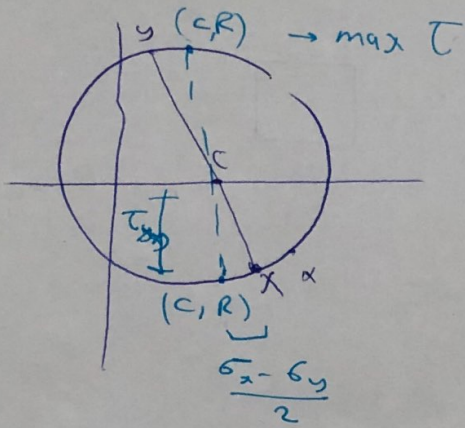 y (C,R) → max τ
C
τxy
X α
(C, R)
σx - σy
2